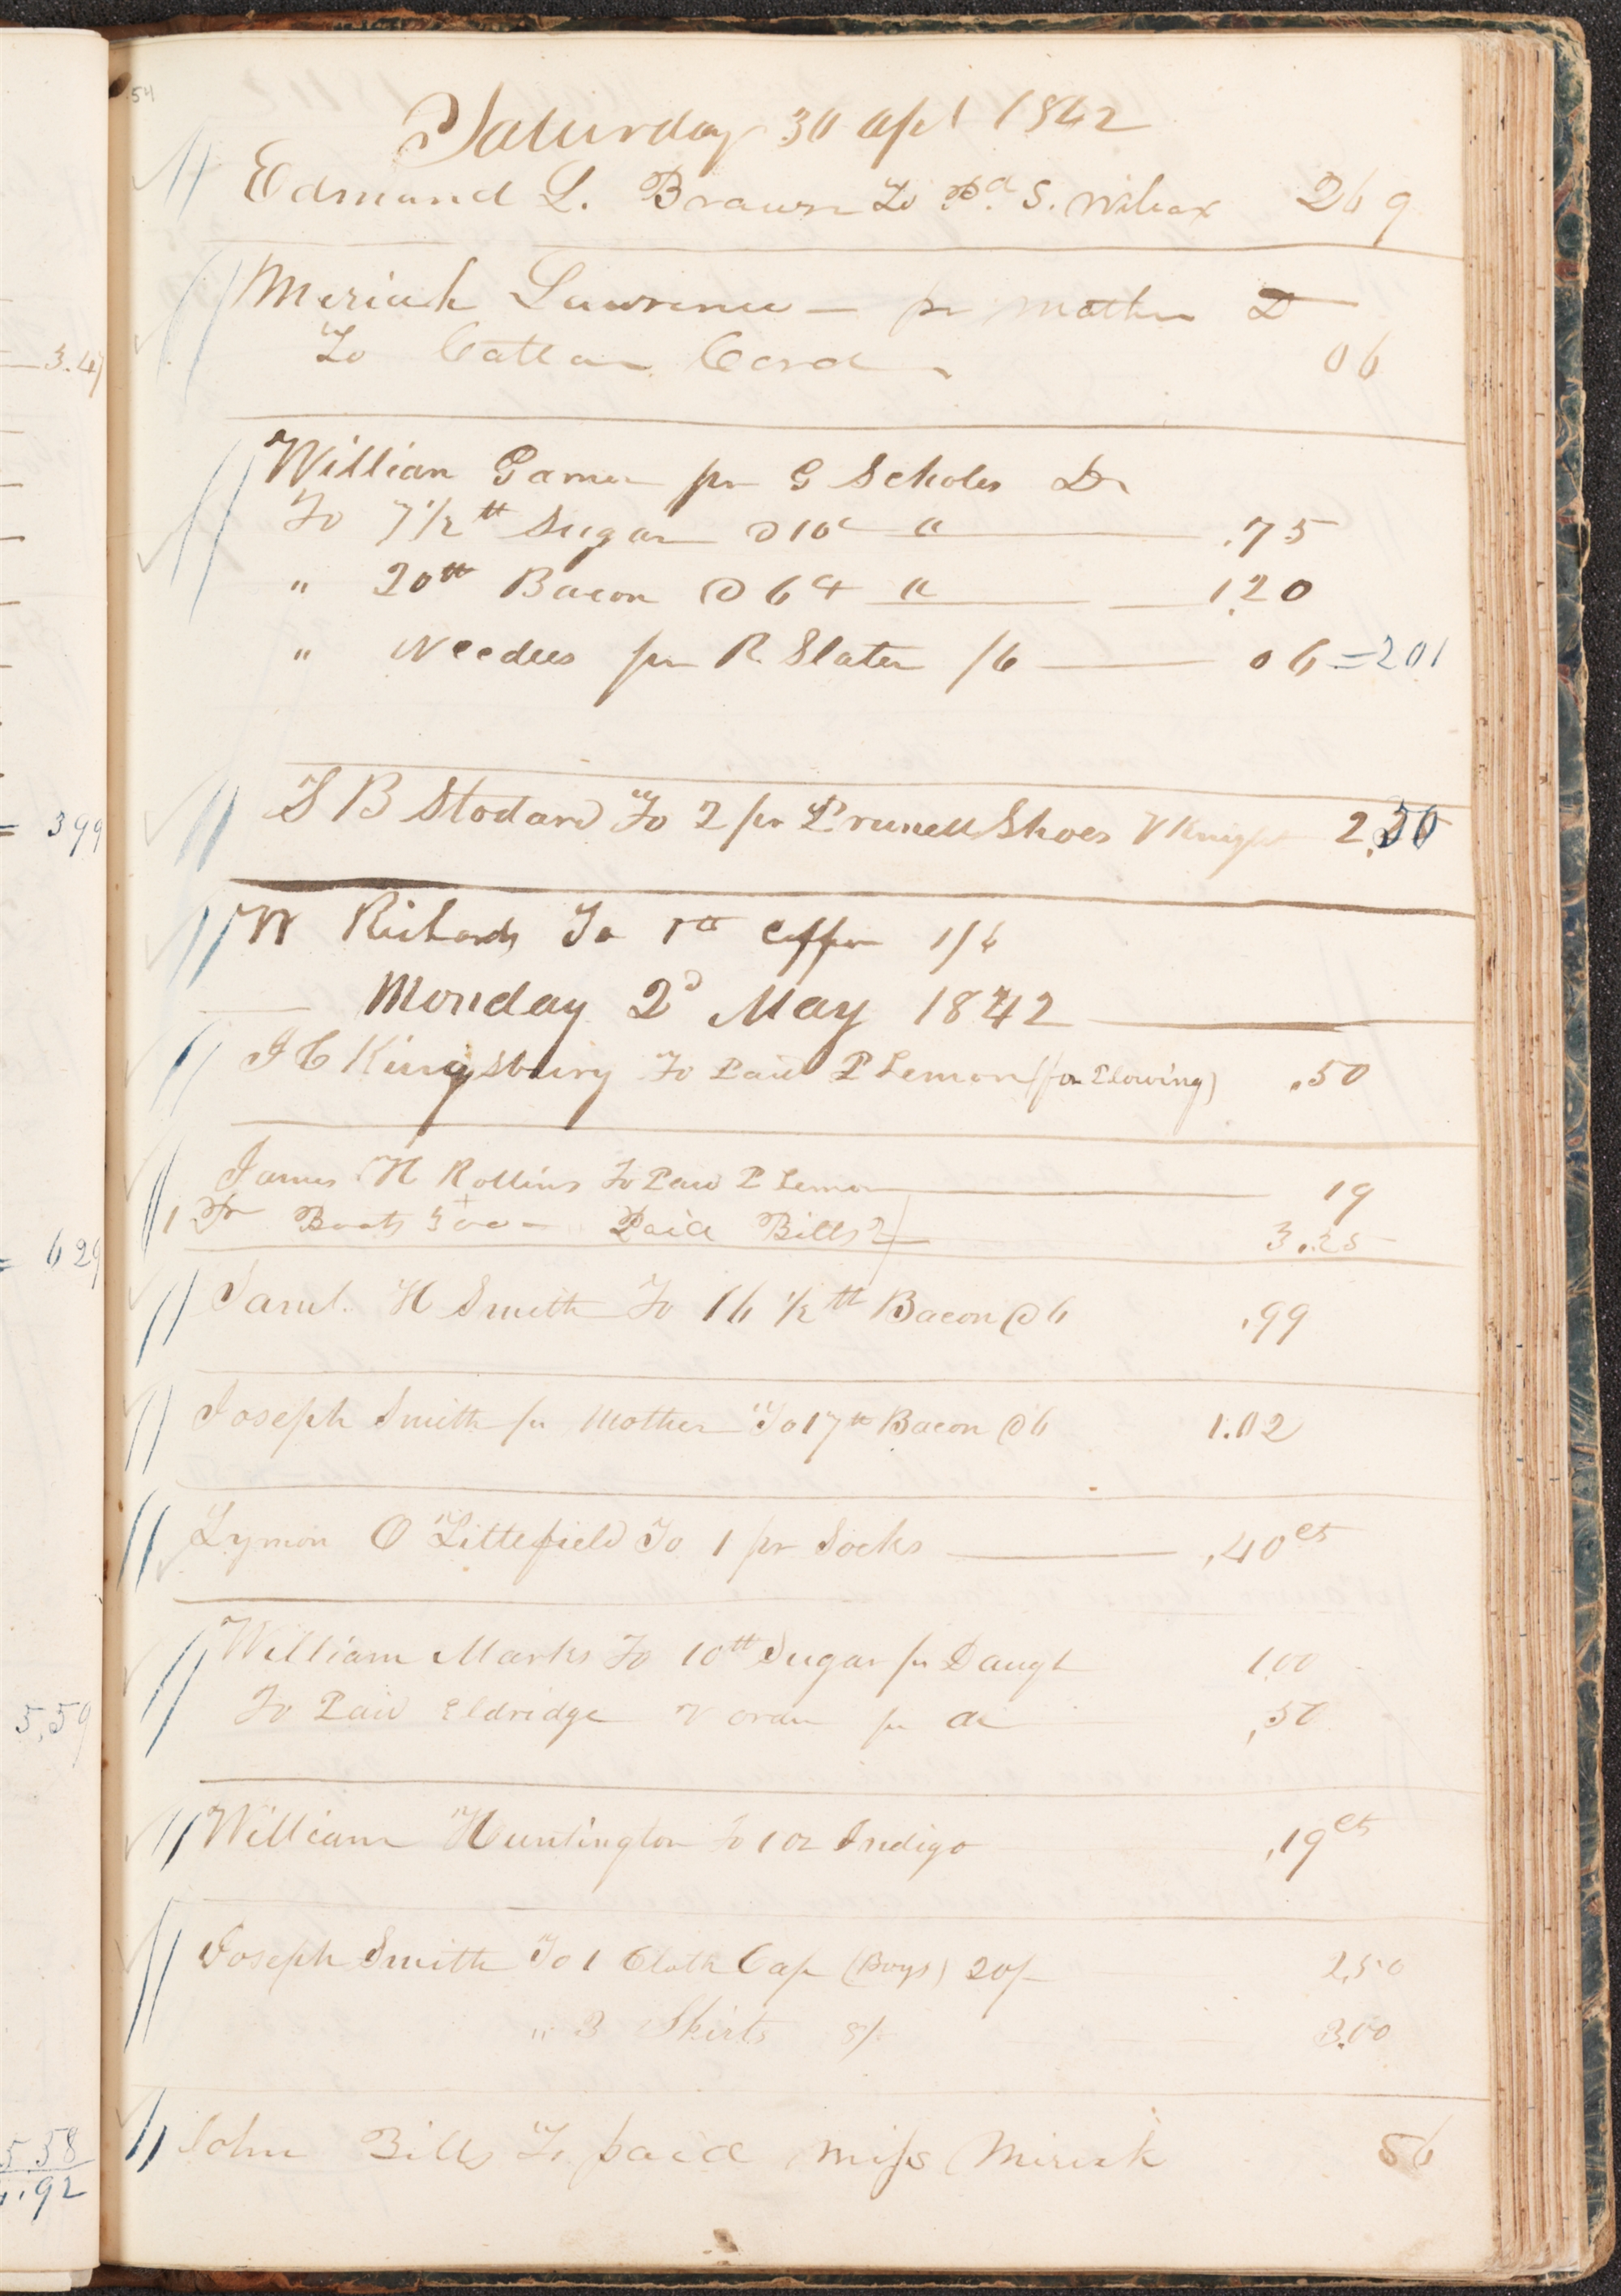 54
Saturday 30 Apl 1842
Edmund L. Brown To Pd. S. Wilcox 269
Meriah Lawrence — pr Mother D
To Cotton Cord 06
3.47
William Garner pr G Scholes Dr
To 7 1/2 tt Sugar @ 10c a .75
" 20tt Bacon @ 6 a 1.20
" Needles pr R Slater /6 06 = 201
S B Stodard To 2 pr Prunell Shoes V Knight 2.50
399
W Richards To 1tt Coffee 1/6
Monday 2d May 1842
J C Kingsbury To Paid P Lemon (for Plowing) .50
James H Rollins To Paid P Lemon 19
Boots Paid Bills 3.25
629
Saml. H Smith To 16 1/2 tt Bacon @ 6 .99
Joseph Smith pr Mother To 17tt Bacon @ 6 1.02
Lymon O Littlefield To 1 pr Socks .40cts
William Marks To 10tt Sugar pr Daught 1.00
To Paid Eldridge V order pr .50
5.59
William Huntington To 1 oz Indigo .19cts
Joseph Smith To 1 Cloth Cap (Boys) 20/- 2.50
" 3 Shirts 8/- 3.00
John Bills To paid Miss Mirick 56
558
.92